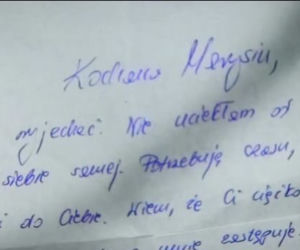 Kochana Marysiu,
wyjechać. Nie uciekłam od
siebie samej. Potrzebuję czasu,
i do Ciebie. Wiem, że Ci ciężko
mnie zastępuje